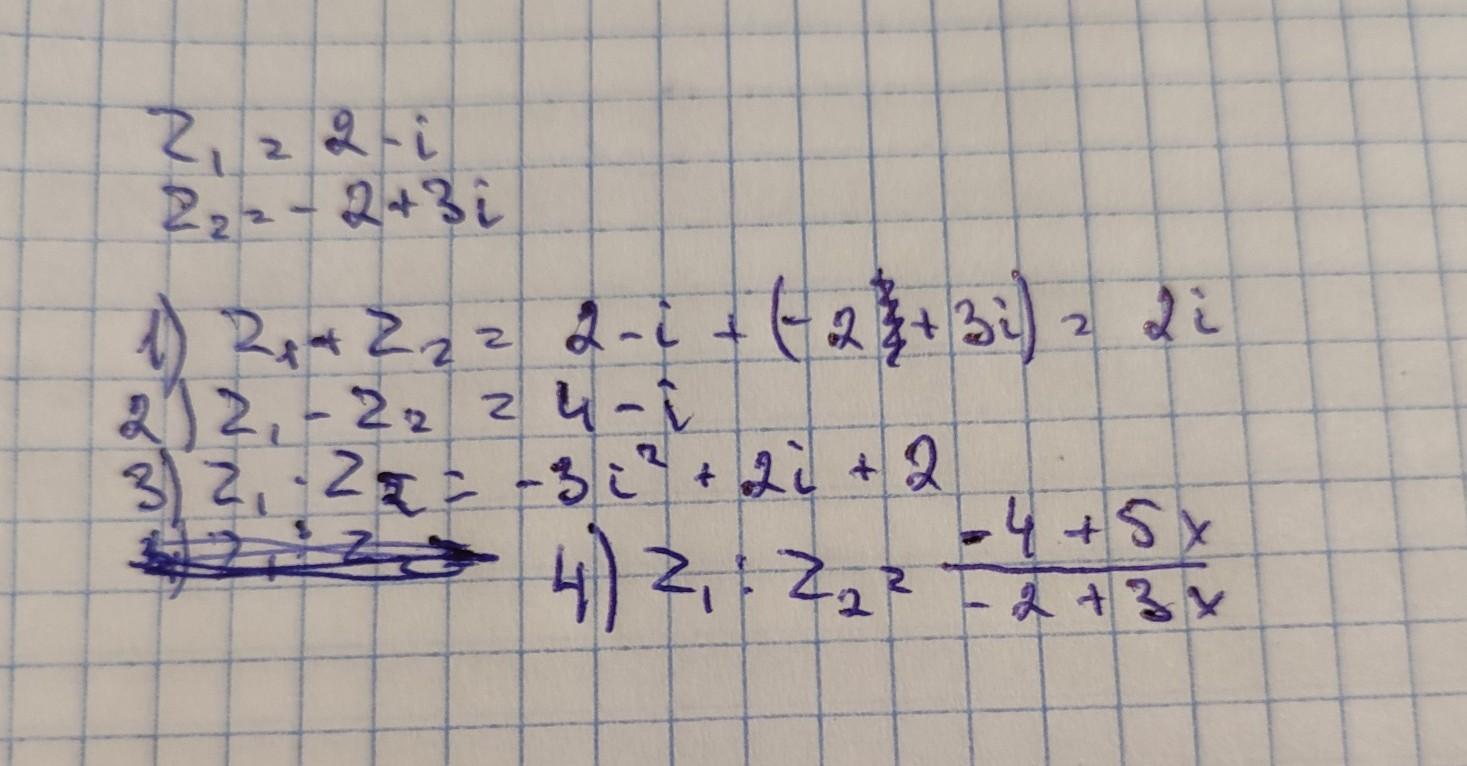 Z₁ = 2 - i
Z₂ = - 2 + 3i
1) Z₁ + Z₂ = 2 - i + (- 2 + 3i) = 2i
2) Z₁ - Z₂ = 4 - i
3) Z₁ · Z₂ = -3i² + 2i + 2
4) Z₁ : Z₂ = (-4 + 5x)/(-2 + 3x)